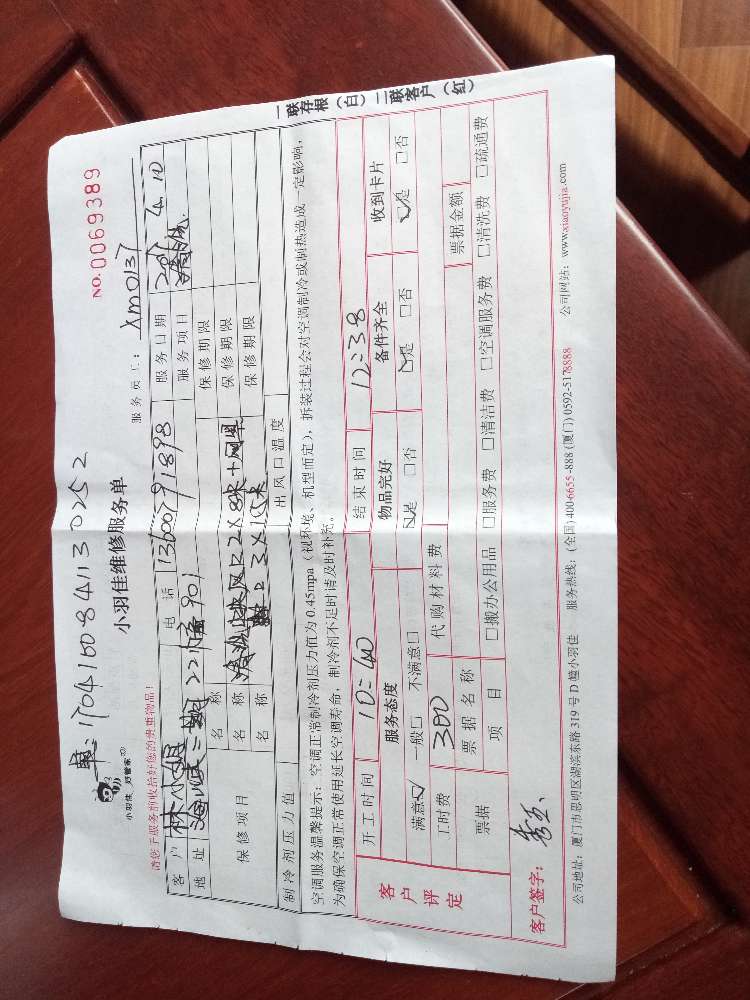 NO.0069389
单:1704160841130252
小羽佳 好管家
小羽佳维修服务单
服务员工: XM0137
请您于服务前收拾好您的贵重物品!
客户 林小姐 电话 13600791898 服务日期 4.10
地址 22 901 服务项目
保修项目 名称 保修期限
名称 保修期限
名称 保修期限
制冷剂压力值 出风口温度
空调服务温馨提示:空调正常制冷剂压力值为0.45mpa(视环境、机型而定),拆装过程会对空调制冷或制热造成一定影响,
为确保空调正常使用延长空调寿命,制冷剂不足时请及时补充。
客户评定
开工时间 10:40 结束时间 12:38
服务态度 物品完好 备件齐全 收到卡片
满意☑ 一般□ 不满意□ ☑是 □否 ☑是 □否 ☑是 □否
工时费 380 代购材料费
票据 票据名称 票据金额
项目 □搬办公用品 □服务费 □清洁费 □空调服务费 □清洗费 □疏通费
客户签字:
公司地址:厦门市思明区湖滨东路319号D幢小羽佳 服务热线:(全国)400-6655-888 (厦门)0592-5178888 公司网站:www.xiaoyujia.com
一联存根(白)二联客户(红)